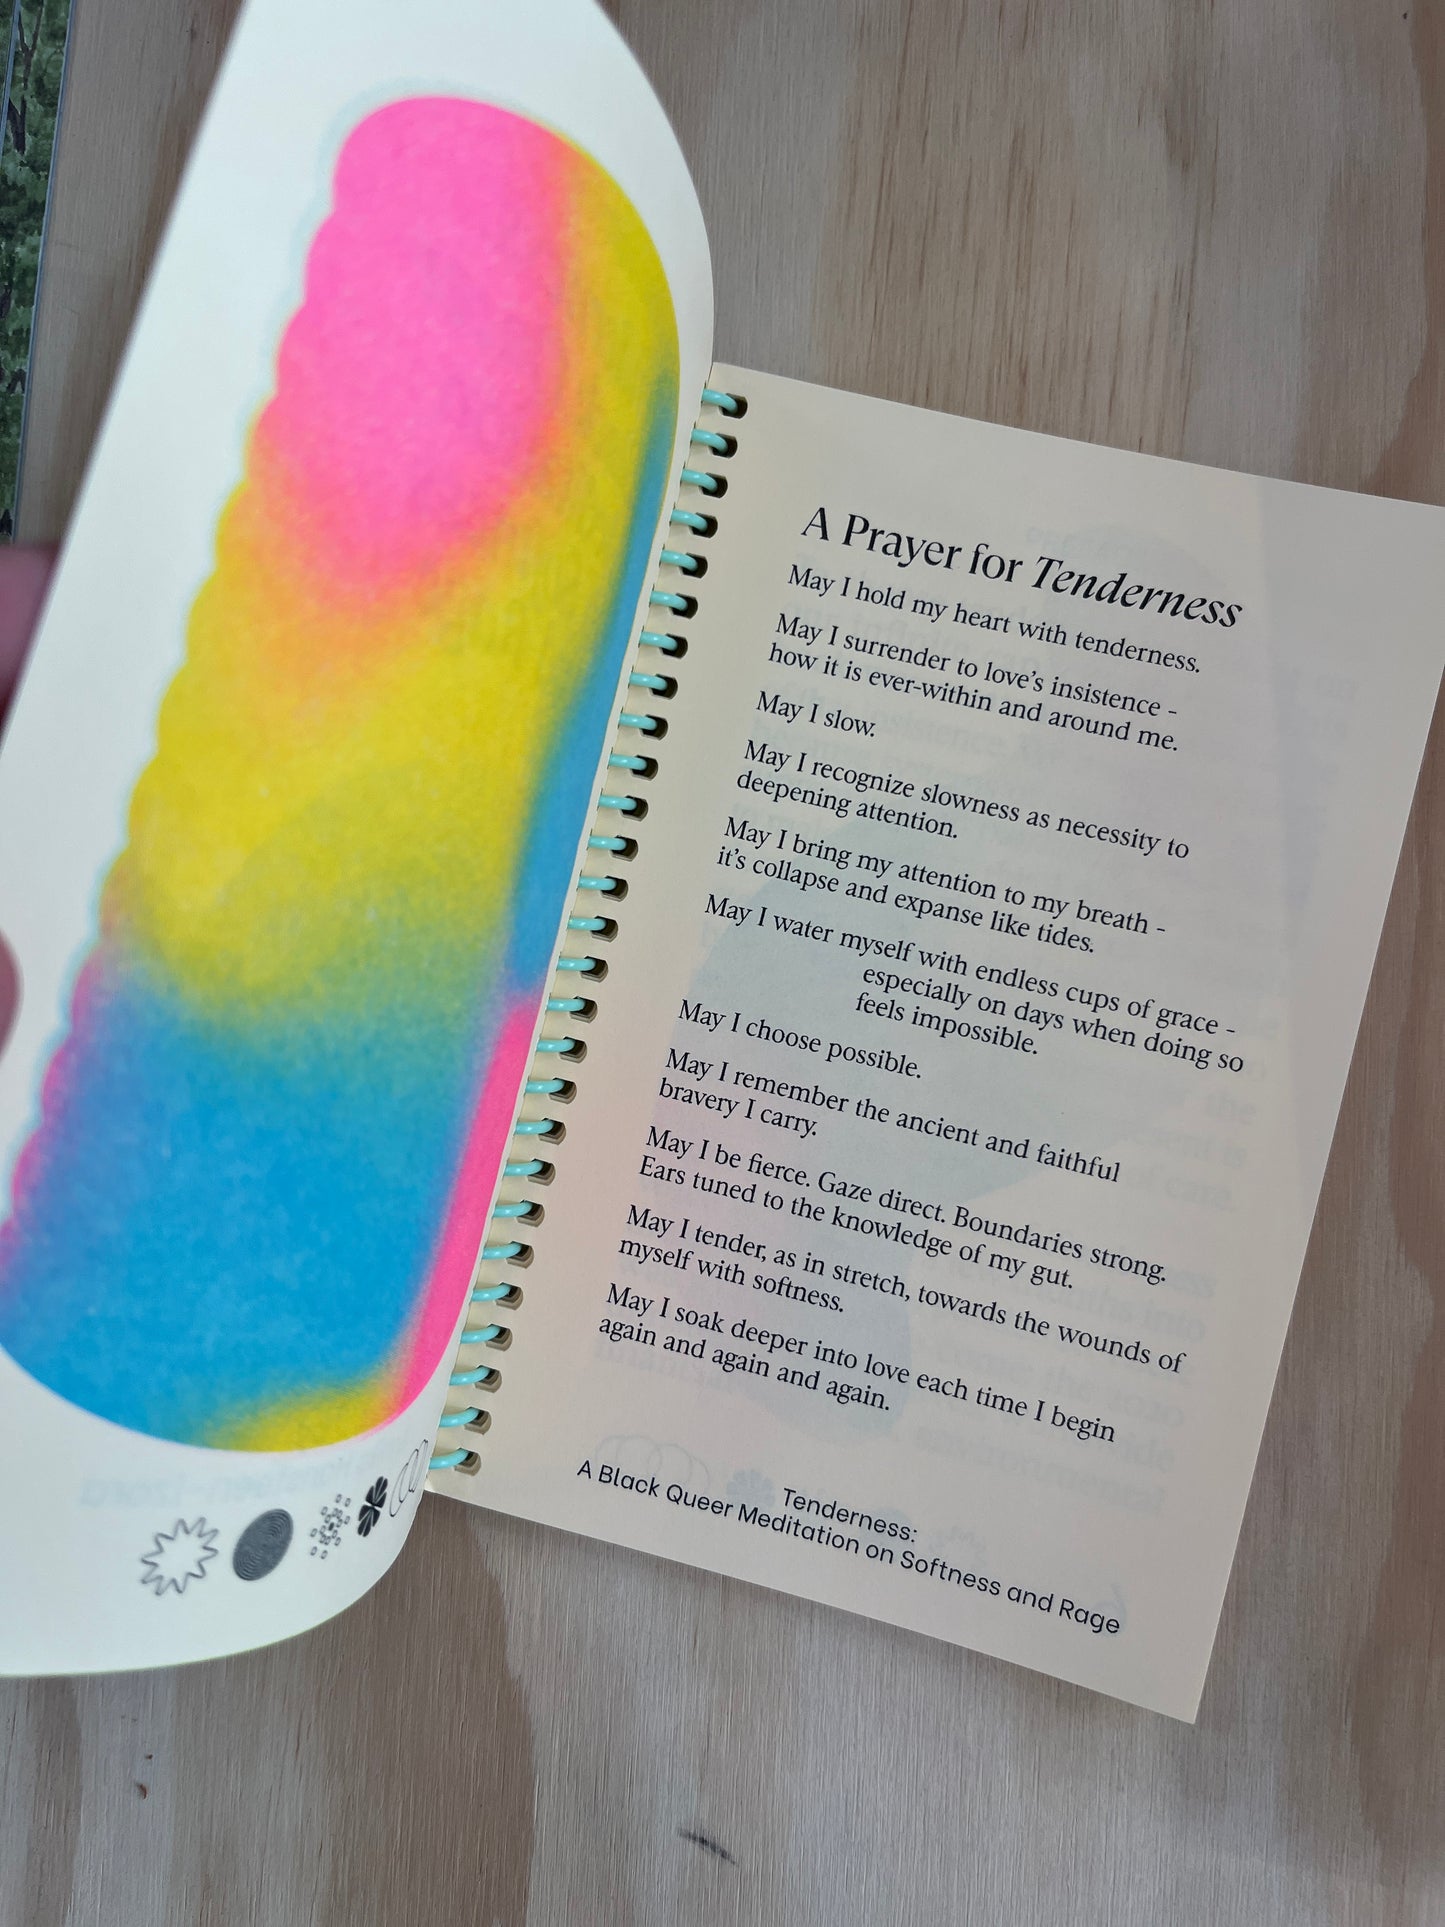 A Prayer for Tenderness
May I hold my heart with tenderness.
May I surrender to love's insistence -
how it is ever-within and around me.
May I slow.
May I recognize slowness as necessity to
deepening attention.
May I bring my attention to my breath -
it's collapse and expanse like tides.
May I water myself with endless cups of grace -
especially on days when doing so
feels impossible.
May I choose possible.
May I remember the ancient and faithful
bravery I carry.
May I be fierce. Gaze direct. Boundaries strong.
Ears tuned to the knowledge of my gut.
May I tender, as in stretch, towards the wounds of
myself with softness.
May I soak deeper into love each time I begin
again and again and again.
Tenderness:
A Black Queer Meditation on Softness and Rage